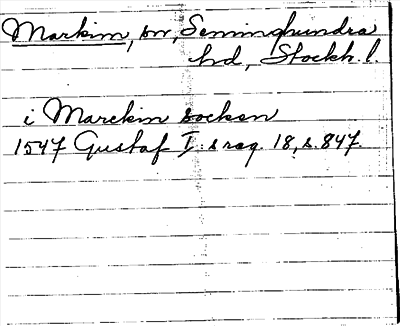 Markim, sn, Seminghundra
hd, Stockh. l.
i Marckim socken
1547 Gustaf I:s reg. 18, s. 847.